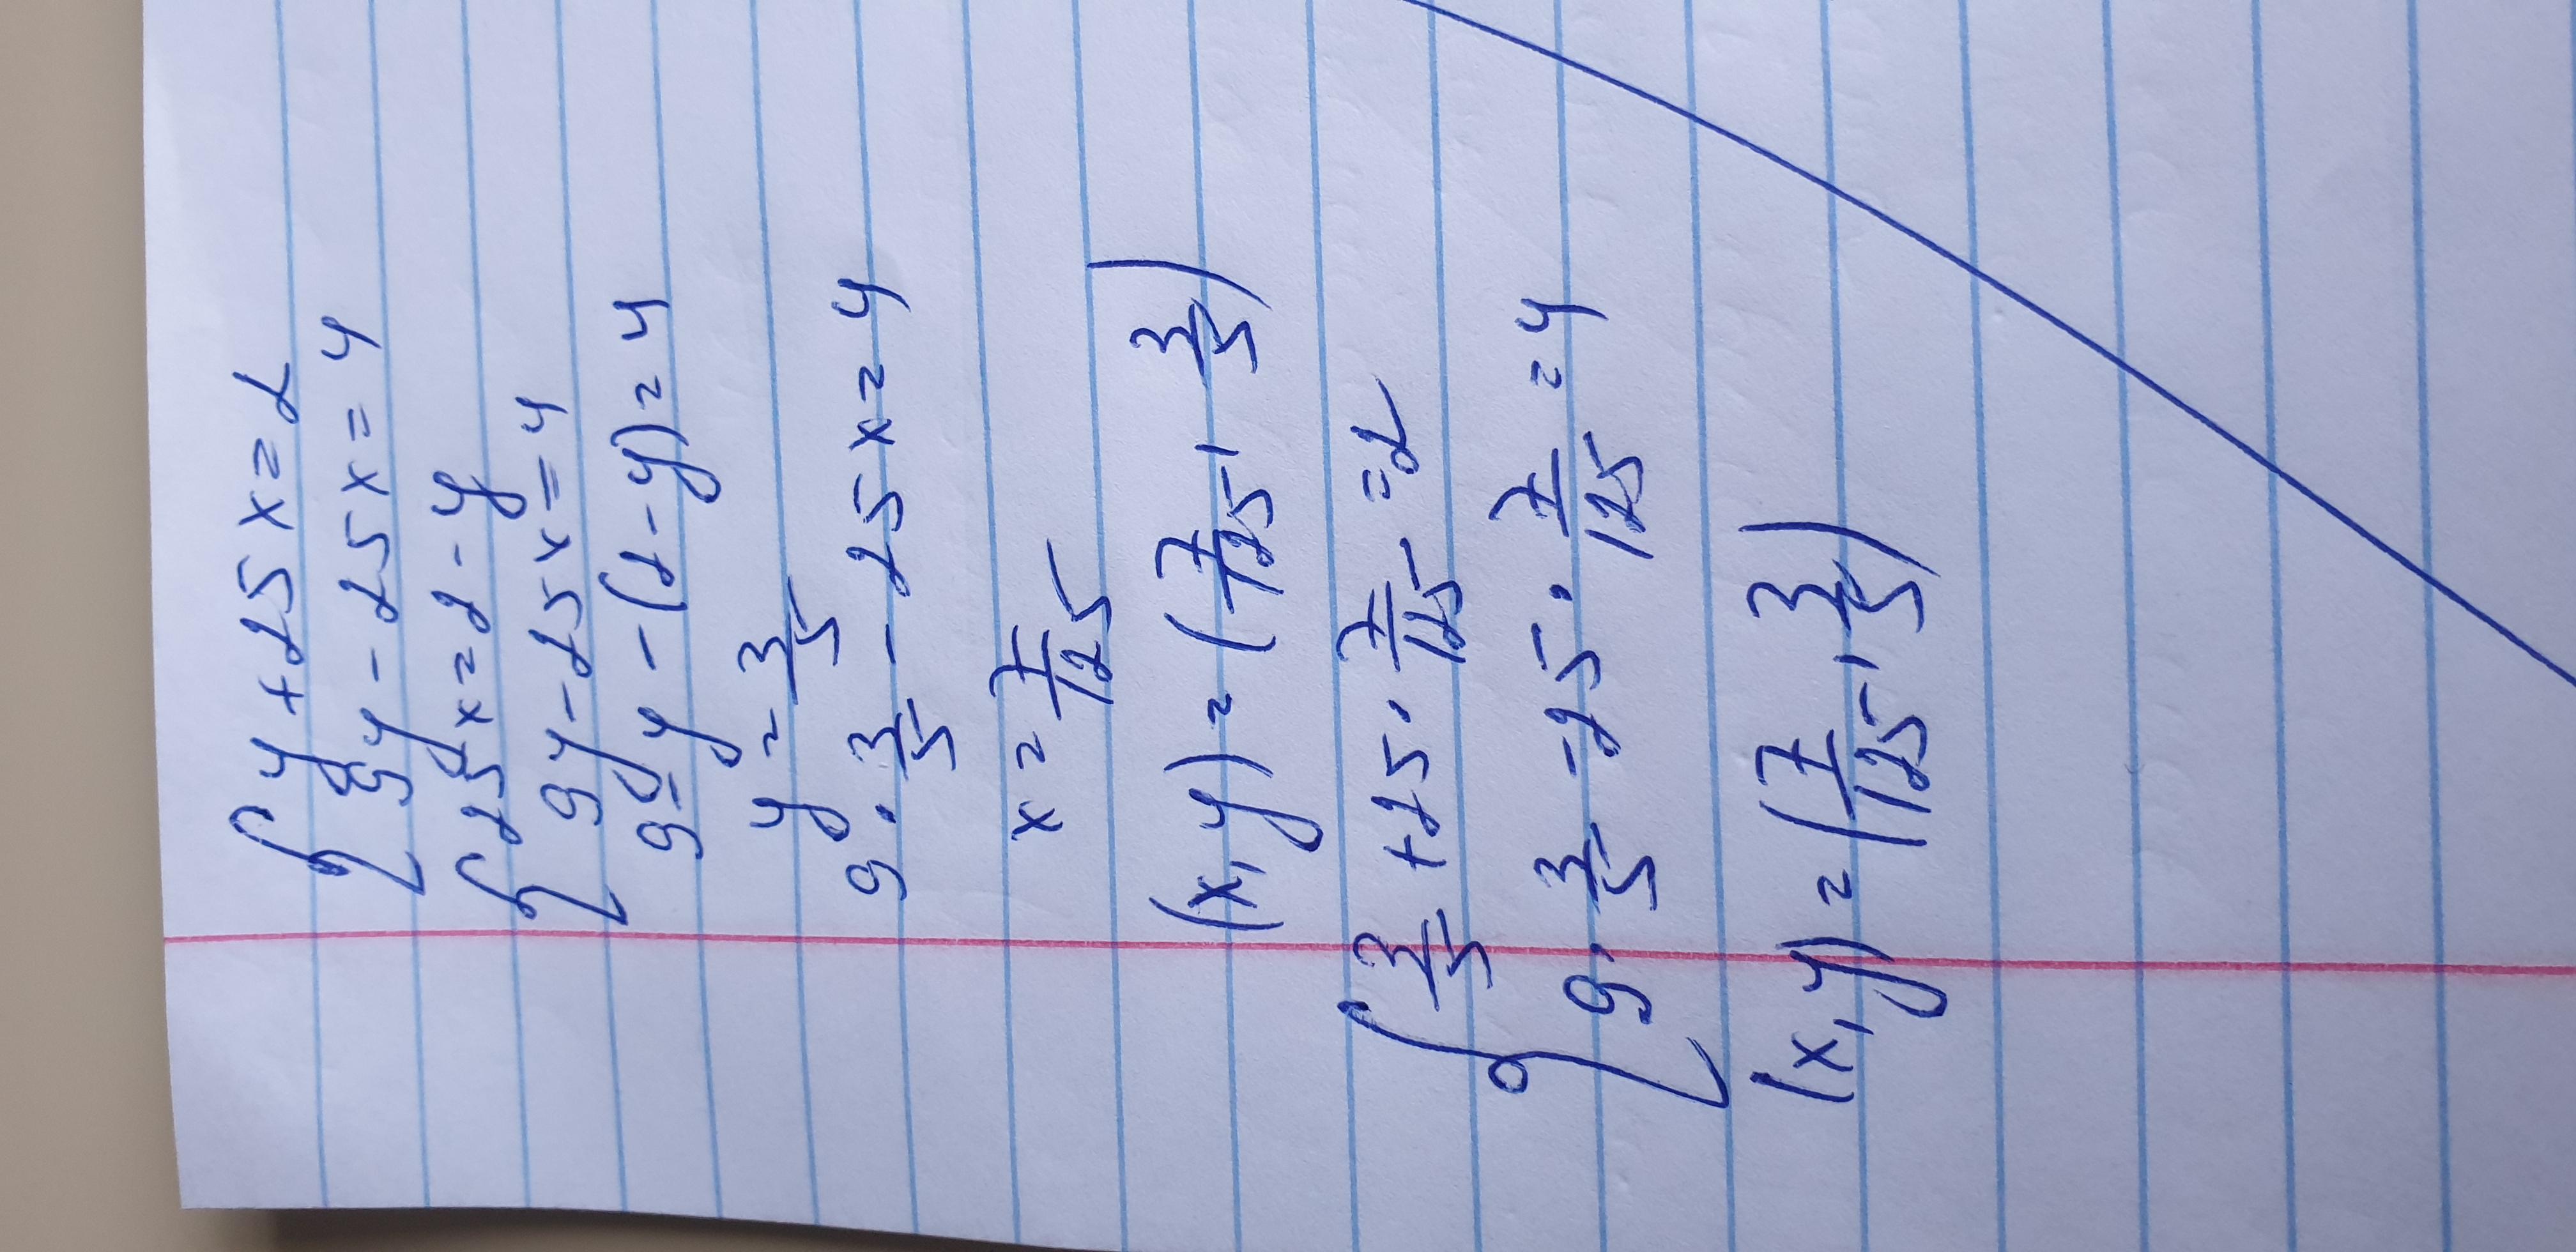 { y + 25x = 2
9y - 25x = 4
{ 25x = 2 - y
9y - 25x = 4
9y - (2 - y) = 4
y = 3/5
9 · 3/5 - 25x = 4
x = 7/125
(x, y) = (7/125, 3/5)
{ 3/5 + 25 · 7/125 = 2
9 · 3/5 - 25 · 7/125 = 4
(x, y) = (7/125, 3/5)